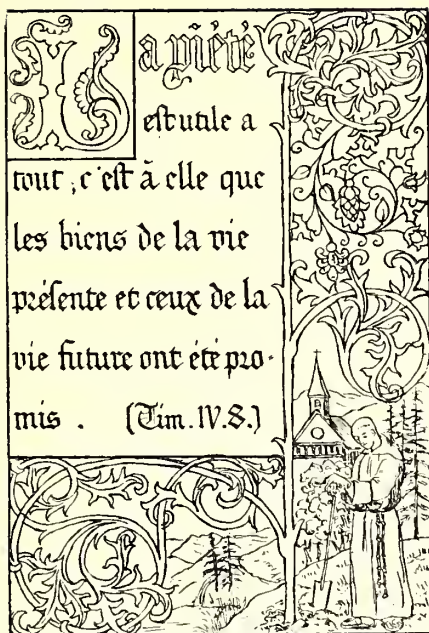 La piété
est utile a
tout ; c'est à elle que
les biens de la vie
présente et ceux de la
vie future ont été pro-
mis . (Tim. IV. 8.)